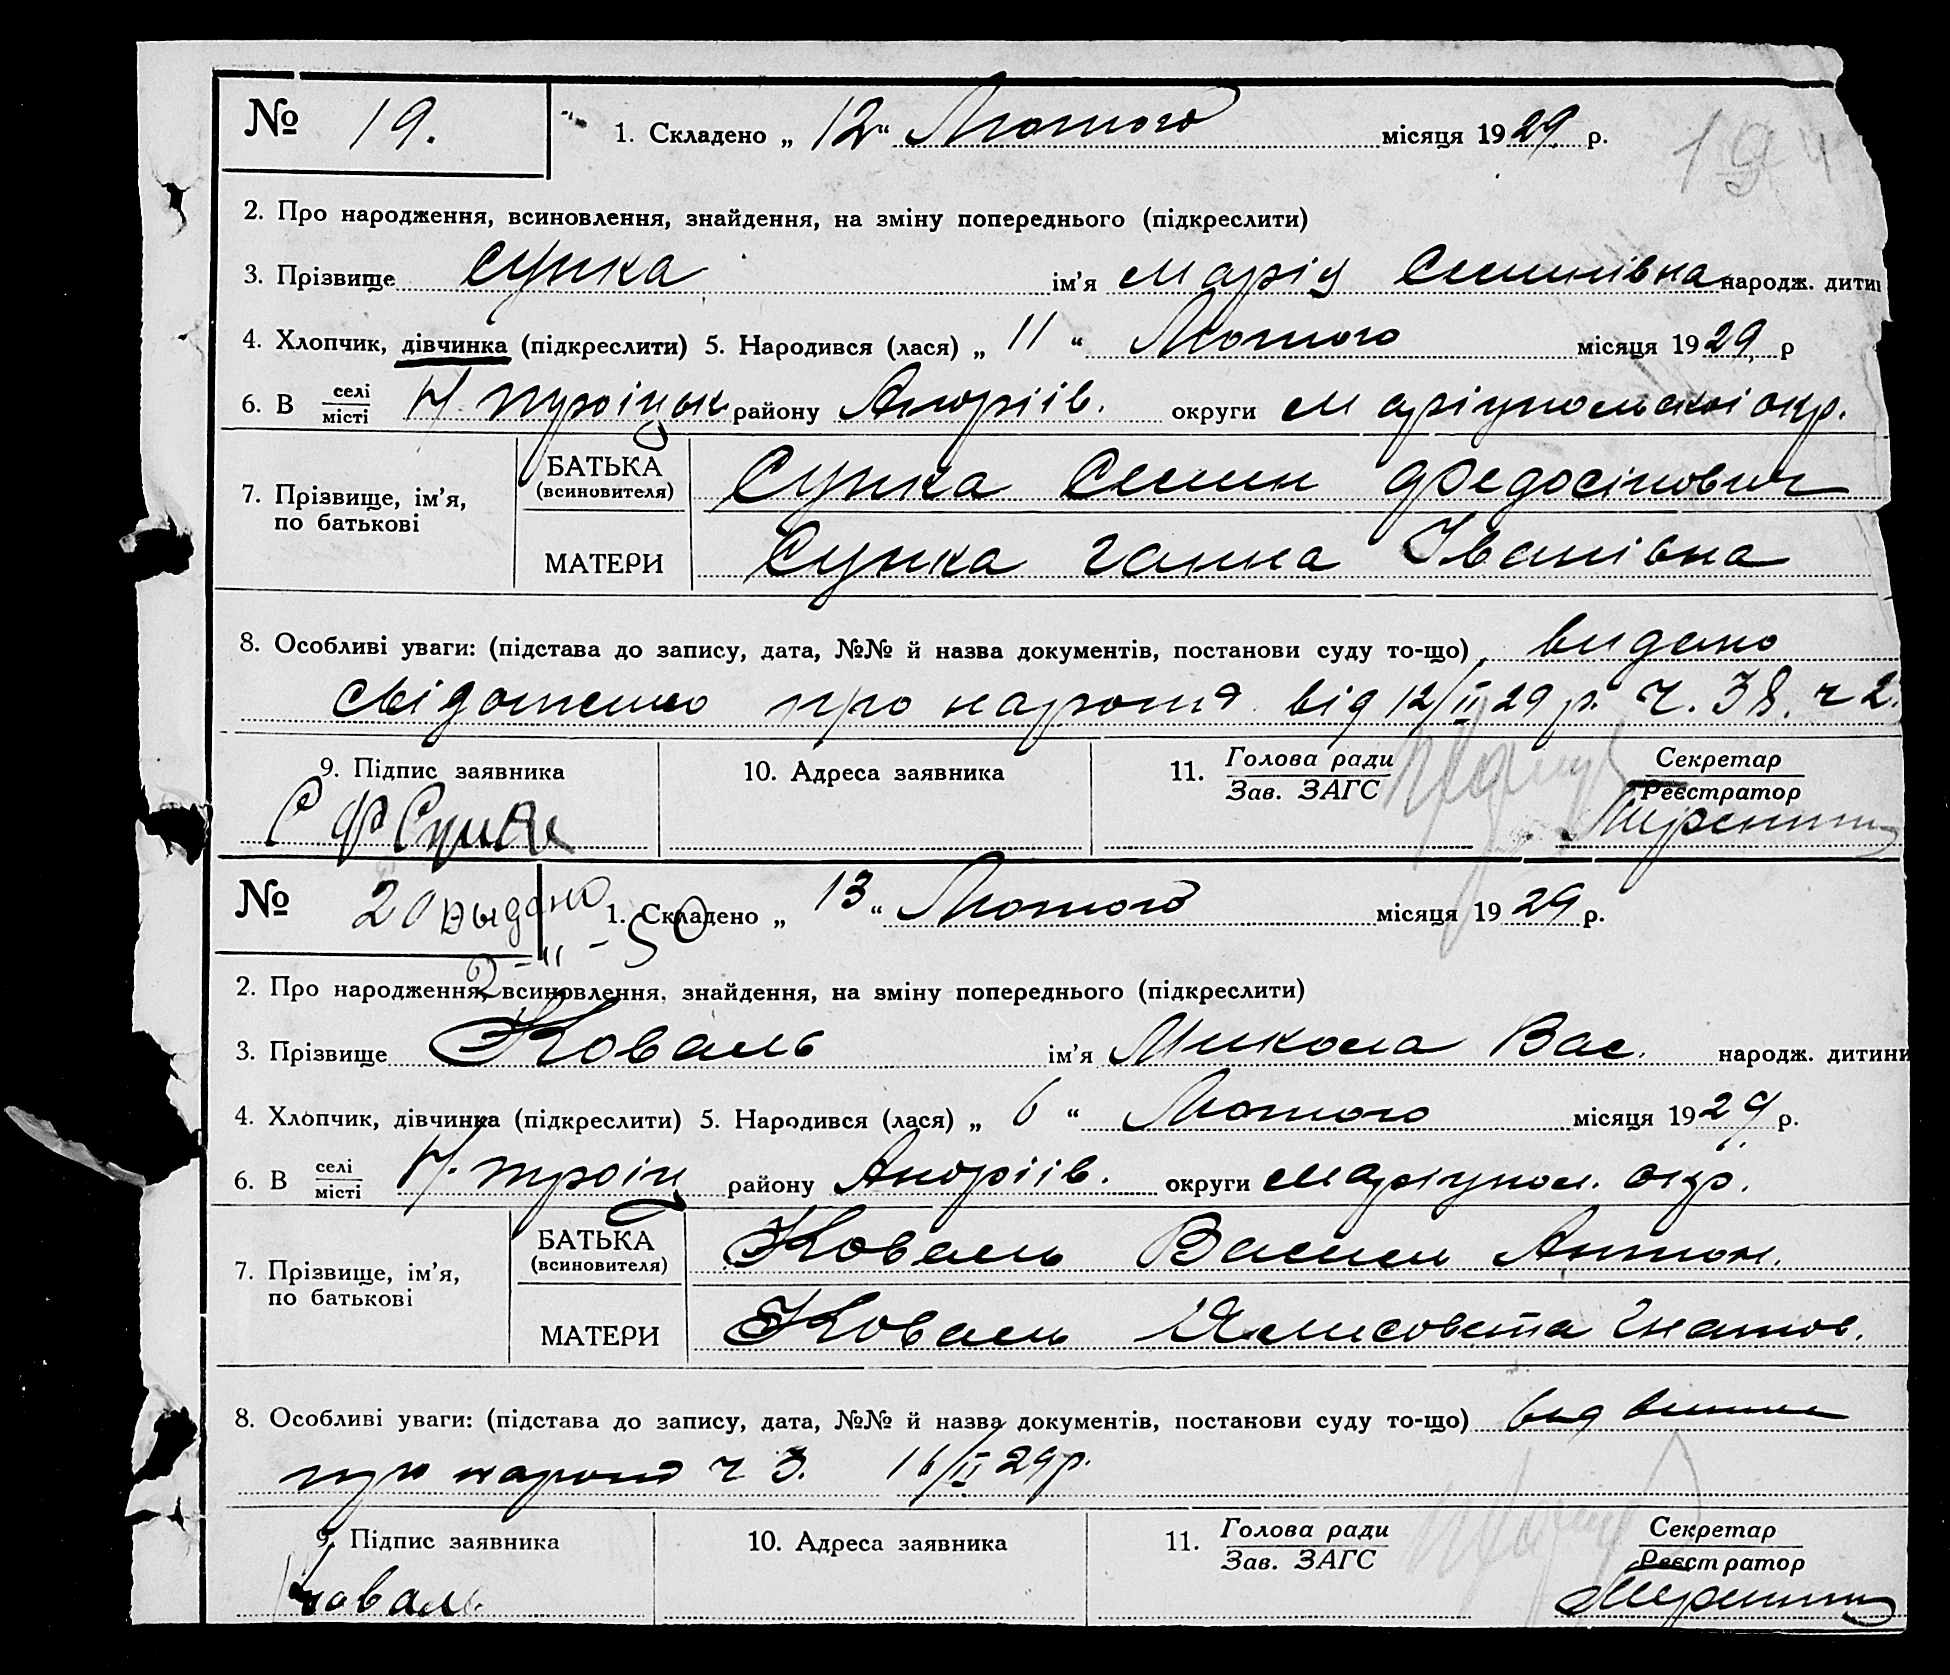 № 19. 1. Складено „ 12 “ Лютого місяця 1929 р.
2. Про народження, всиновлення, знайдення, на зміну попереднього (підкреслити)
3. Прізвище Супка ім’я Марія Семинівна народж. дити
4. Хлопчик, дівчинка (підкреслити) 5. Народився (лася) „ 11 “ Лютого місяця 1929 р
6. В селі/місті району Андріїв. округи Маріупольської окр.
7. Прізвище, ім’я, по батькові
БАТЬКА (всиновителя) Супка Семин Федосіпович
МАТЕРИ Супка Ганна Іванівна
8. Особливі уваги: (підстава до запису, дата, №№ й назва документів, постанови суду то-що) видано
про від 12/II 29 р. ч. 38. ч 2.
9. Підпис заявника 10. Адреса заявника 11. Голова ради/Зав. ЗАГС Секретар/Реєстратор
С Ф Супка
№ 20 Выдано 1. Складено „ 13 “ Лютого місяця 1929 р.
2-II-50
2. Про народження, всиновлення, знайдення, на зміну попереднього (підкреслити)
3. Прізвище Коваль ім’я Микола Вас. народж. дитини
4. Хлопчик, дівчинка (підкреслити) 5. Народився (лася) „ 6 “ Лютого місяця 1929 р.
6. В селі/місті Н. Троіц району Андріїв. округи Маріупол. окр.
7. Прізвище, ім’я, по батькові
БАТЬКА (всиновителя) Коваль Василь Антон.
МАТЕРИ Коваль Гнатов.
8. Особливі уваги: (підстава до запису, дата, №№ й назва документів, постанови суду то-що)
про ч 3. 16/II 29 р.
9. Підпис заявника 10. Адреса заявника 11. Голова ради/Зав. ЗАГС Секретар/Реєстратор
Коваль